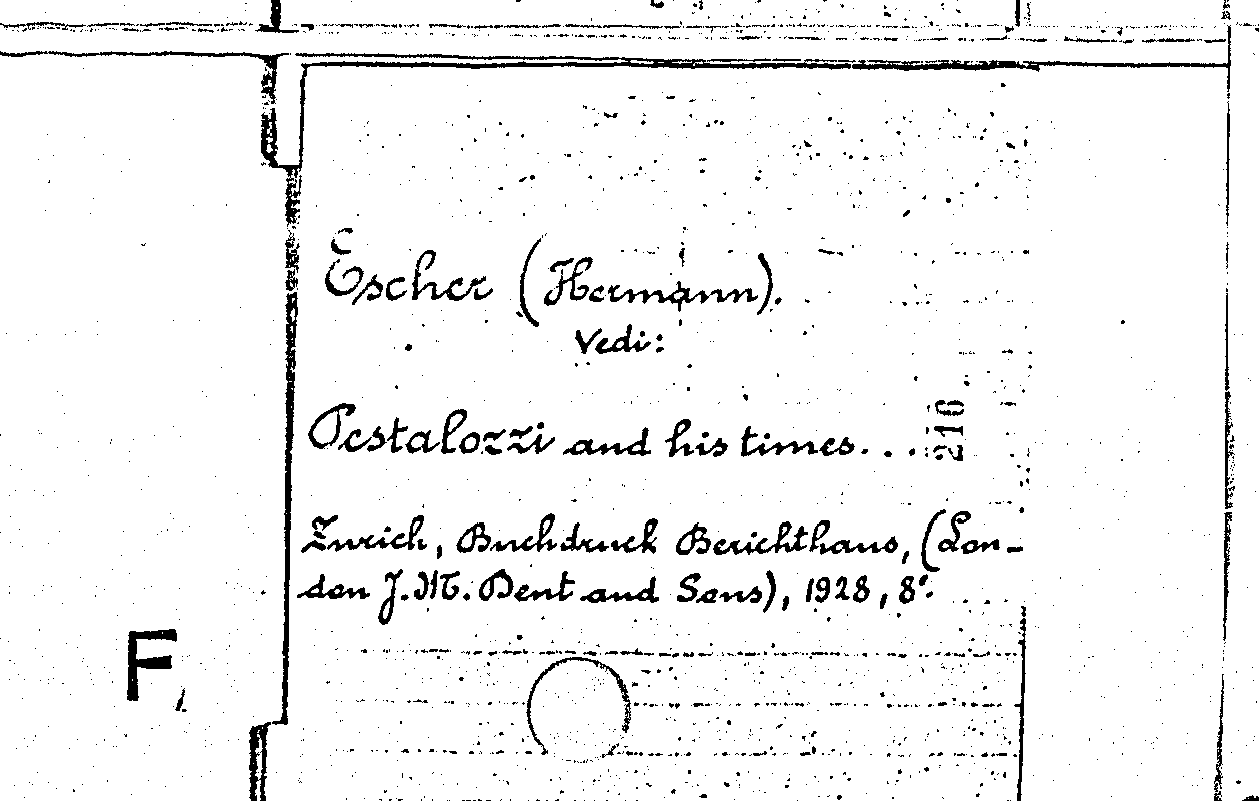 Escher (Hermann).
Vedi:
Pestalozzi and his times...
216
Zurich, Buchdruck Berichthaus, (Lon-
don J.M. Dent and Sons), 1928, 8°.
F